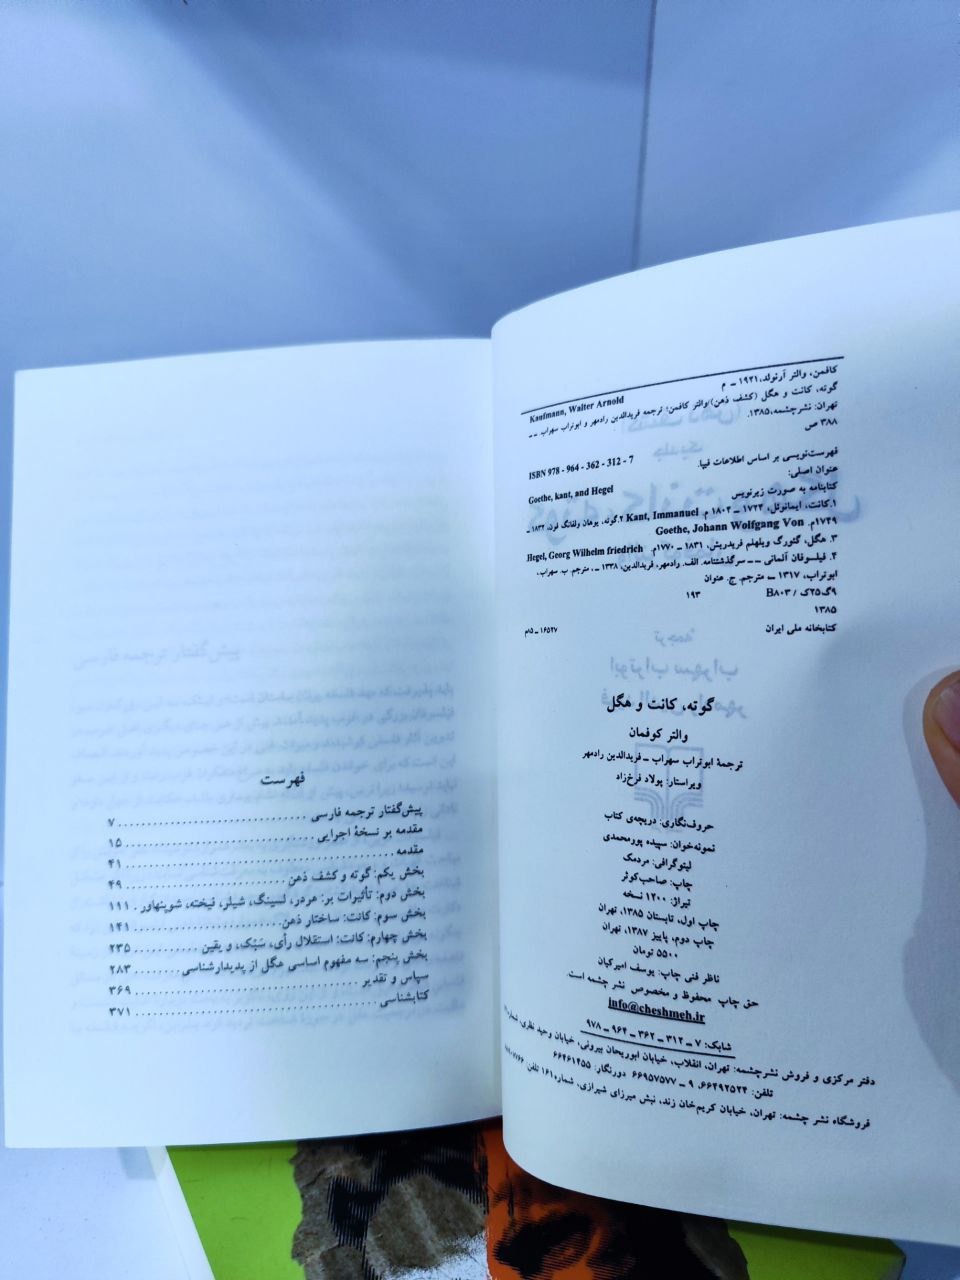 کافمن، والتر آرنولد، ۱۹۲۱ ـ م
Kaufmann, Walter Arnold
گوته، کانت و هگل (کشف ذهن)/والتر کافمن؛ ترجمه فریدالدین رادمهر و ابوتراب سهراب ـ ـ
تهران: نشرچشمه، ۱۳۸۵.
۳۸۸ ص
ISBN 978 - 964 - 362 - 312 - 7
فهرست‌نویسی بر اساس اطلاعات فیپا.
عنوان اصلی:
Goethe, kant, and Hegel
کتابنامه به صورت زیرنویس
۱.کانت، ایمانوئل، ۱۷۲۴ ـ ۱۸۰۴ م. Kant, Immanuel ۲.گوته، یوهان ولفانگ فون، ۱۸۳۲ ـ
۱۷۴۹م. Goethe, Johann Wolfgang Von
۳. هگل، گئورگ ویلهلم فریدریش، ۱۸۳۱ ـ ۱۷۷۰م. Hegel, Georg Wilhelm friedrich
۴. فیلسوفان آلمانی ــ سرگذشتنامه. الف. رادمهر، فریدالدین، ۱۳۳۸ ـ ، مترجم. ب. سهراب،
ابوتراب، ۱۳۱۷ ـ مترجم. ج. عنوان
۹گ۲۵ک / B۸۰۳ ۱۹۳
۱۳۸۵
کتابخانه ملی ایران ۱۶۵۲۷ ـ ۸۵م
گوته، کانت و هگل
والتر کوفمان
ترجمهٔ ابوتراب سهراب ـ فریدالدین رادمهر
ویراستار: پولاد فرخ‌زاد
حروف‌نگاری: دریچه‌ی کتاب
نمونه‌خوان: سپیده پورمحمدی
لیتوگرافی: مردمک
چاپ: صاحب‌کوثر
تیراژ: ۱۲۰۰ نسخه
چاپ اول، تابستان ۱۳۸۵، تهران
چاپ دوم، پاییز ۱۳۸۷، تهران
۵۵۰۰ تومان
ناظر فنی چاپ: یوسف امیرکیان
حق چاپ محفوظ و مخصوص نشر چشمه است.
info@cheshmeh.ir
شابک: ۷ ـ ۳۱۲ ـ ۳۶۲ ـ ۹۶۴ ـ ۹۷۸
دفتر مرکزی و فروش نشرچشمه: تهران، انقلاب، خیابان ابوریحان بیرونی، خیابان وحید نظری، شماره
تلفن: ۶۶۴۹۲۵۲۴، ۹ ـ ۶۶۹۵۷۵۷۷ دورنگار: ۶۶۴۶۱۴۵۵
فروشگاه نشر چشمه: تهران، خیابان کریم‌خان زند، نبش میرزای شیرازی، شماره۱۶۱ تلفن:
فهرست
پیش‌گفتار ترجمه فارسی ........ ۷
مقدمه بر نسخهٔ اجرایی ........ ۱۵
مقدمه ........ ۴۱
بخش یکم: گوته و کشف ذهن ........ ۴۹
بخش دوم: تأثیرات بر: هردر، لسینگ، شیلر، فیخته، شوپنهاور . ۱۱۱
بخش سوم: کانت: ساختار ذهن ........ ۱۴۱
بخش چهارم: کانت: استقلال رأی، سَبْک، و یقین ........ ۲۳۵
بخش پنجم: سه مفهوم اساسی هگل از پدیدارشناسی ........ ۲۸۳
سپاس و تقدیر ........ ۳۶۹
کتابشناسی ........ ۳۷۱